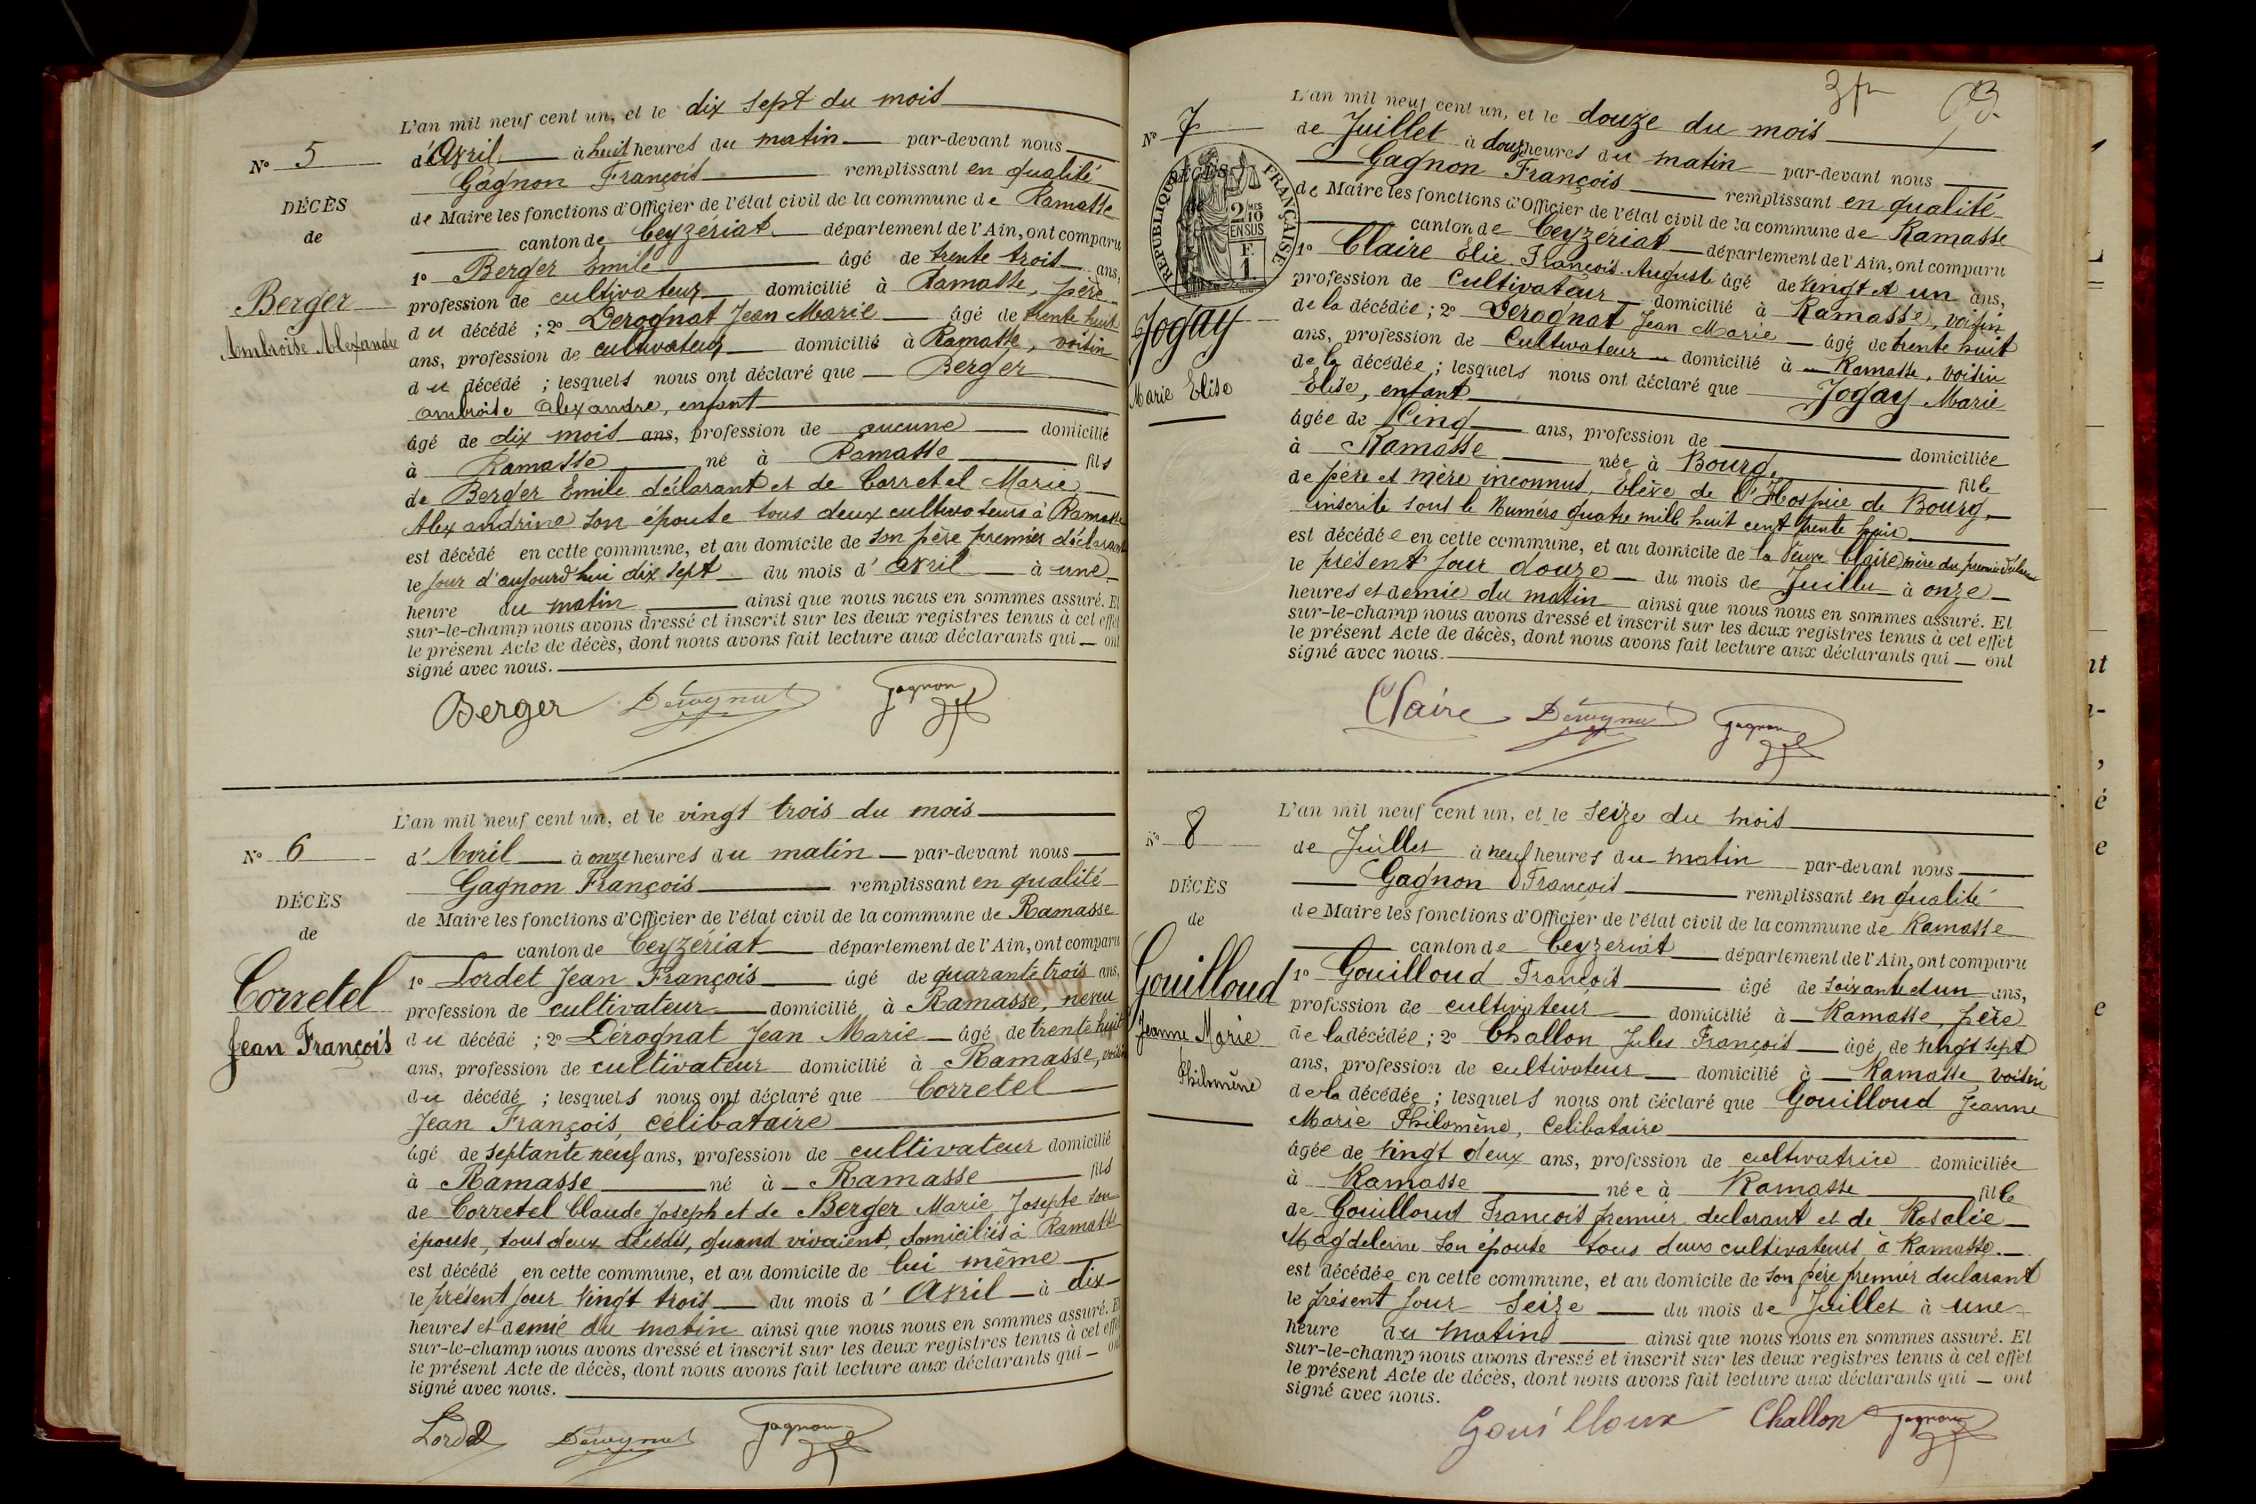 L'an mil neuf cent un, et le dix sept du mois
N° 5
d'Avril à huit heures du matin par-devant nous
Gagnon François remplissant en qualité
DÉCÈS
de Maire les fonctions d'Officier de l'état civil de la commune de Ramasse
de
canton de Ceyzériat département de l'Ain, ont comparu
1° Berger Emile âgé de trente trois ans,
Berger
profession de cultivateur domicilié à Ramasse, père
Ambroise Alexandre
du décédé ; 2° Derognat Jean Marie âgé de trente huit
ans, profession de cultivateur domicilié à Ramasse, voisin
du décédé ; lesquels nous ont déclaré que Berger
ambroise alexandre, enfant
âgé de dix mois ans, profession de aucune domicilié
à Ramasse né à Ramasse fils
de Berger Emile déclarant et de Corretel Marie
Alexandrine son épouse tous deux cultivateurs à Ramasse
est décédé en cette commune, et au domicile de son père premier déclarant
le jour d'aujourd'hui dix sept du mois d'avril à une
heure du matin ainsi que nous nous en sommes assuré. Et
sur-le-champ nous avons dressé et inscrit sur les deux registres tenus à cet effet
le présent Acte de décès, dont nous avons fait lecture aux déclarants qui ont
signé avec nous.
Berger Derognat Gagnon
L'an mil neuf cent un, et le vingt trois du mois
N° 6
d'Avril à onze heures du matin par-devant nous
Gagnon François remplissant en qualité
DÉCÈS
de Maire les fonctions d'Officier de l'état civil de la commune de Ramasse
de
canton de Ceyzériat département de l'Ain, ont comparu
Corretel
1° Lordet Jean François âgé de quarante trois ans,
profession de cultivateur domicilié à Ramasse, neveu
Jean François
du décédé ; 2° Dérognat Jean Marie âgé de trente huit
ans, profession de cultivateur domicilié à Ramasse, voisin
du décédé ; lesquels nous ont déclaré que Corretel
Jean François, célibataire
âgé de septante neuf ans, profession de cultivateur domicilié
à Ramasse né à Ramasse fils
de Corretel Claude Joseph et de Berger Marie Josepte son
épouse, tous deux décédés, quand vivaient, domiciliés à Ramasse
est décédé en cette commune, et au domicile de lui même
le présent jour vingt trois du mois d'Avril à dix
heures et demie du matin ainsi que nous nous en sommes assuré. Et
sur-le-champ nous avons dressé et inscrit sur les deux registres tenus à cet effet
le présent Acte de décès, dont nous avons fait lecture aux déclarants qui ont
signé avec nous.
Lordet Derognat Gagnon
L'an mil neuf cent un, et le douze du mois
N° 7
de Juillet à douze heures du matin par-devant nous
Gagnon François remplissant en qualité
DÉCÈS
de Maire les fonctions d'Officier de l'état civil de la commune de Ramasse
de
RÉPUBLIQUE FRANÇAISE
2/10 MES
EN SUS
F.
1
canton de Ceyzériat département de l'Ain, ont comparu
1° Claire Elie François August âgé de vingt et un ans,
profession de Cultivateur domicilié à Ramasse, voisin
Jogay
de la décédée ; 2° Derognat Jean Marie âgé de trente huit
ans, profession de Cultivateur domicilié à Ramasse, voisin
Marie Elise
de la décédée ; lesquels nous ont déclaré que Jogay Marie
Elise, enfant
âgée de Cinq ans, profession de domiciliée
à Ramasse née à Bourg, fille
de père et mère inconnus, Elève de l'Hospice de Bourg,
inscrite sous le Numéro quatre mille huit cent trente
est décédée en cette commune, et au domicile de la Veuve Claire mère du premier déclarant
le présent jour douze du mois de Juillet à onze
heures et demie du matin ainsi que nous nous en sommes assuré. Et
sur-le-champ nous avons dressé et inscrit sur les deux registres tenus à cet effet
le présent Acte de décès, dont nous avons fait lecture aux déclarants qui ont
signé avec nous.
Claire Derognat Gagnon
L'an mil neuf cent un, et le seize du mois
N° 8
de Juillet à neuf heures du matin par-devant nous
Gagnon François remplissant en qualité
DÉCÈS
de Maire les fonctions d'Officier de l'état civil de la commune de Ramasse
de
canton de Ceyzériat département de l'Ain, ont comparu
Gouilloud
1° Gouilloud François âgé de soixante et un ans,
profession de cultivateur domicilié à Ramasse, père
Jeanne Marie
de la décédée ; 2° Challon Jules François âgé de vingt sept
Philomène
ans, profession de cultivateur domicilié à Ramasse, voisin
de la décédée ; lesquels nous ont déclaré que Gouilloud Jeanne
Marie Philomène, Célibataire
âgée de vingt deux ans, profession de cultivatrice domiciliée
à Ramasse née à Ramasse fille
de Gouilloud François premier declarant et de Rosalie
Magdeleine son épouse tous deux cultivateurs à Ramasse.
est décédée en cette commune, et au domicile de son père premier declarant
le présent jour seize du mois de Juillet à une
heure du matin ainsi que nous nous en sommes assuré. Et
sur-le-champ nous avons dressé et inscrit sur les deux registres tenus à cet effet
le présent Acte de décès, dont nous avons fait lecture aux déclarants qui ont
signé avec nous.
Gouilloux Challon Gagnon